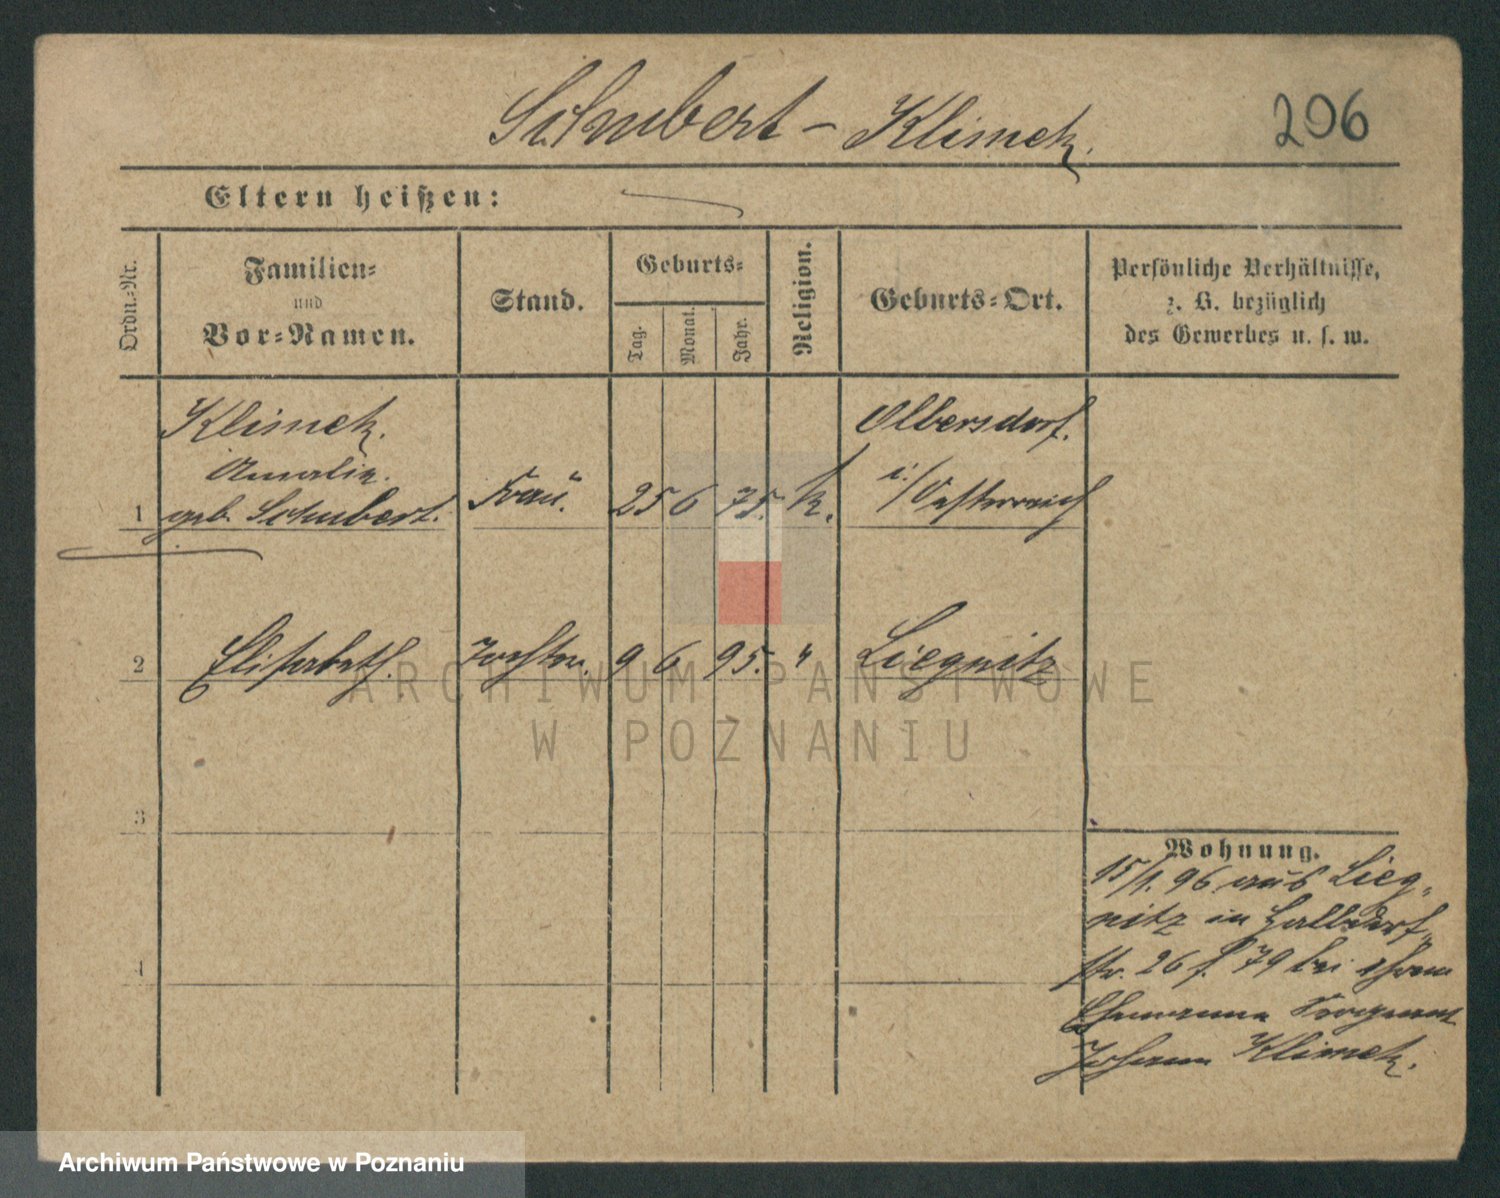 Schubert – Klimek.
206
Eltern heißen:
Ordn.-Nr.
Familien-
und
Vor-Namen.
Stand.
Geburts-
Tag.
Monat.
Jahr.
Religion.
Geburts-Ort.
Persönliche Verhältnisse,
z. B. bezüglich
des Gewerbes u. s. w.
Klimek.
Amalie.
1 geb. Schubert. Frau. 25 6 75. k.
Olbersdorf.
i./Oesterreich
2 Elisabeth. Tochter. 9 6 95. " Liegnitz
3
4
Wohnung.
15/1. 96 aus Lieg-
nitz in
str. 26 f. 79 bei ihrem
Ehemanne Sergeant
Johann Klimek.
ARCHIWUM PAŃSTWOWE
W POZNANIU
Archiwum Państwowe w Poznaniu